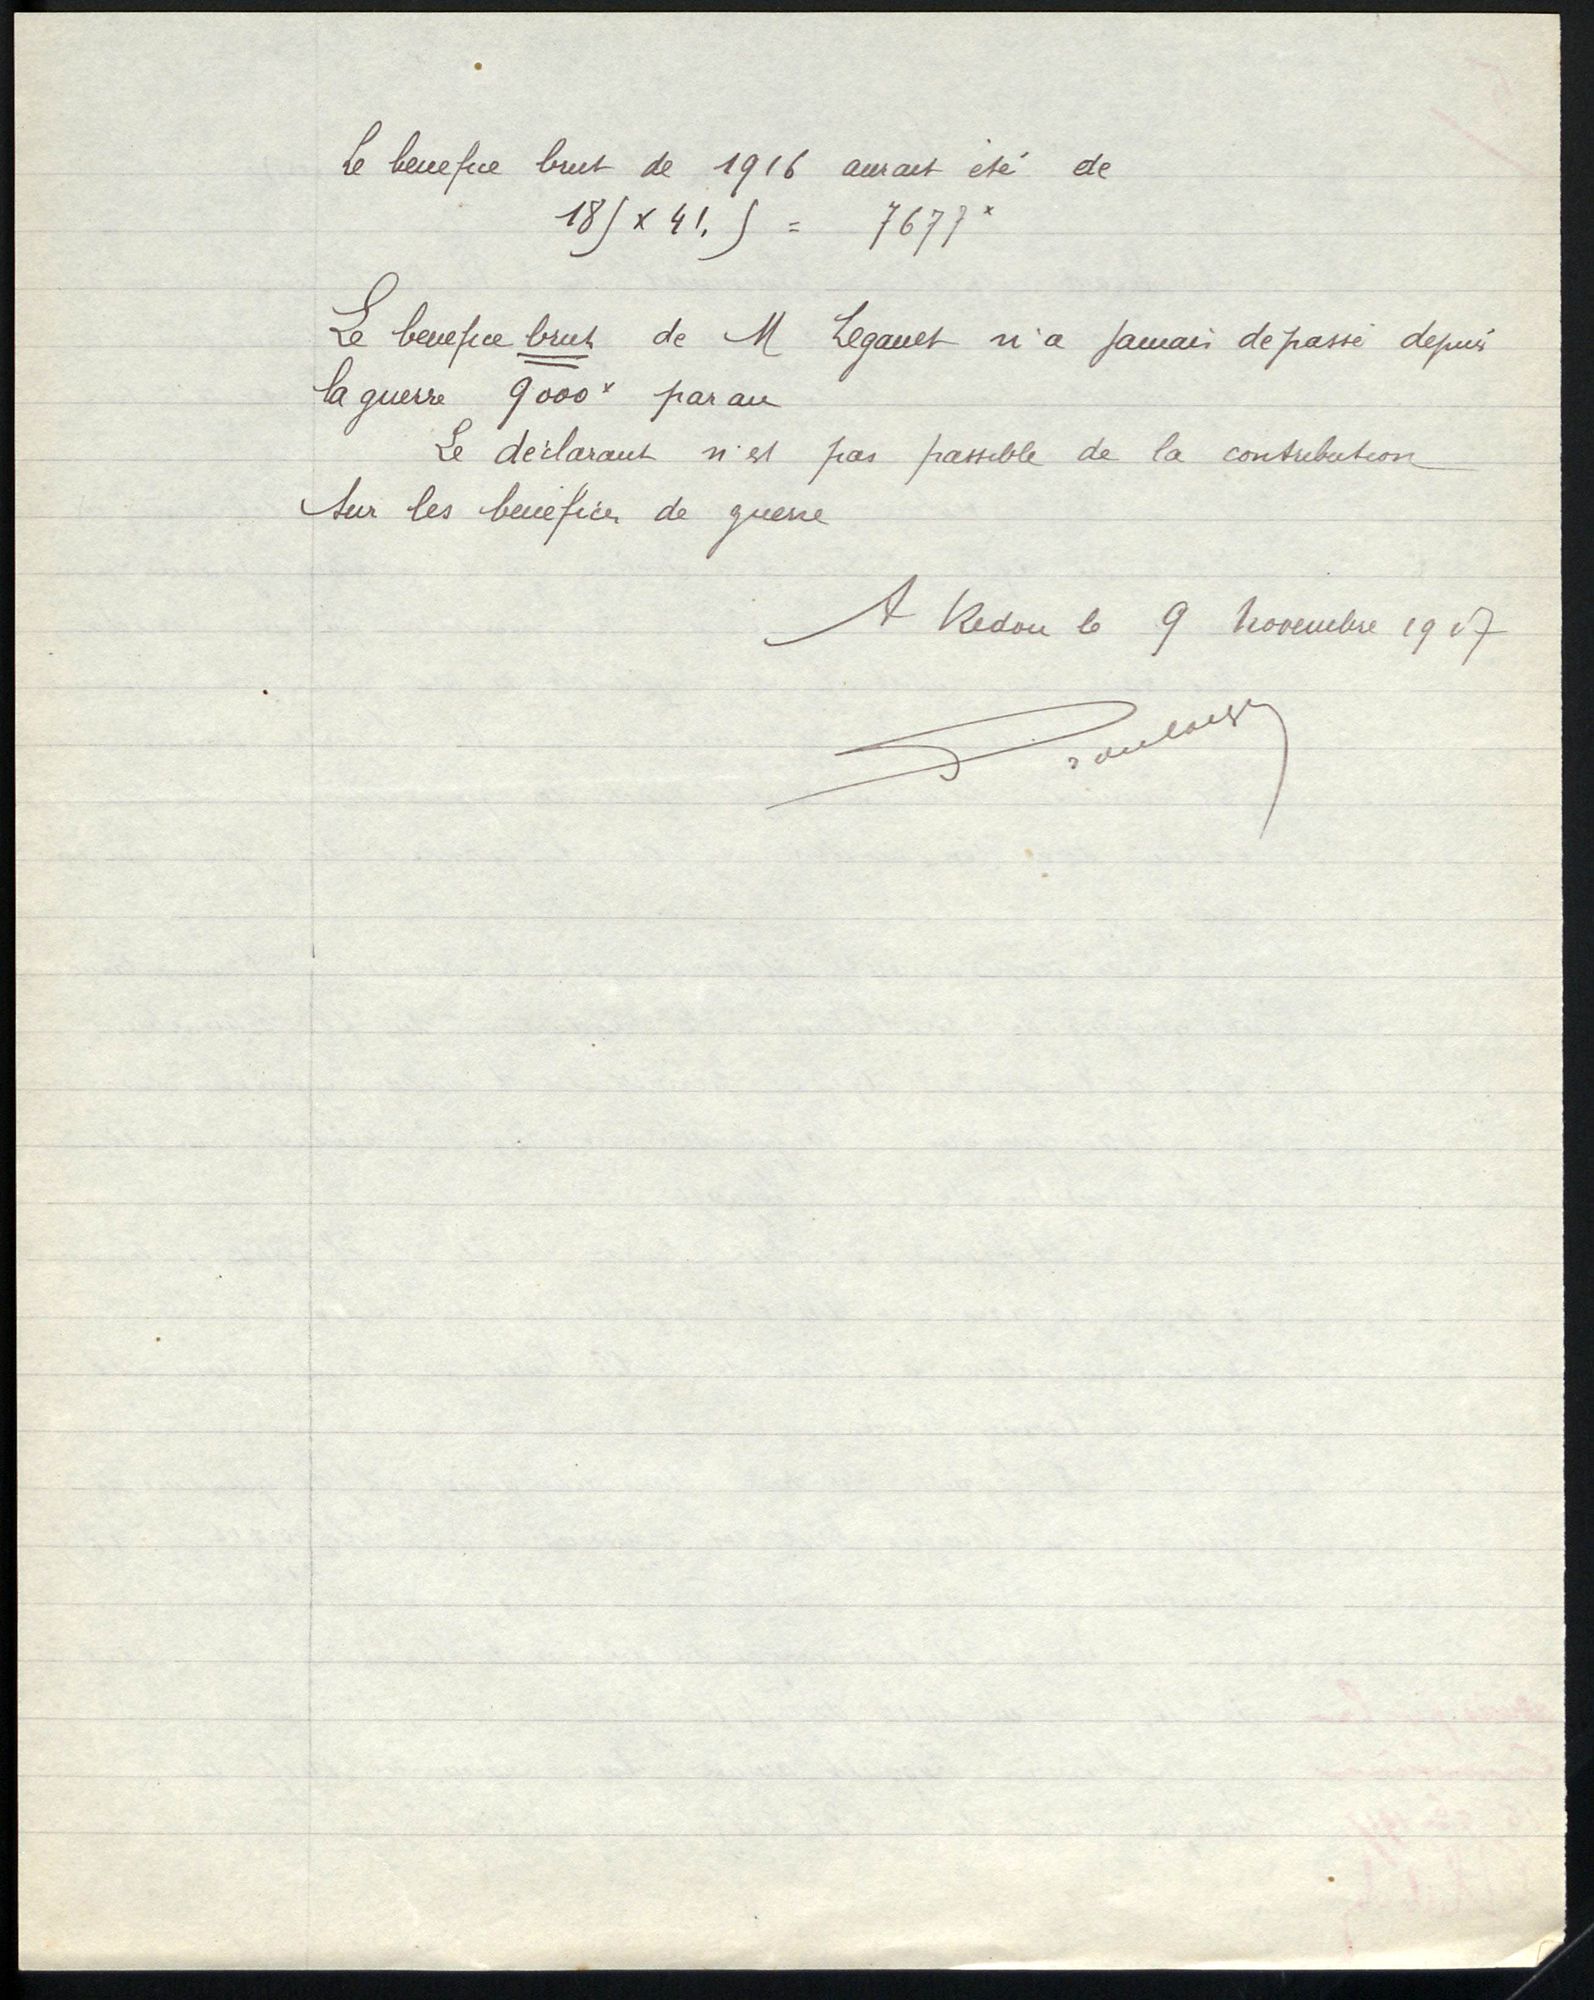 Le benefice brut de 1916 aurait été de
185 x 41.5 = 7677 x
Le benefice brut de M Leganet n'a jamais dépassé depuis
la guerre 9000 x par an
Le déclarant n'est pas passible de la contribution
sur les bénéfices de guerre
A Redon le 9 Novembre 1917